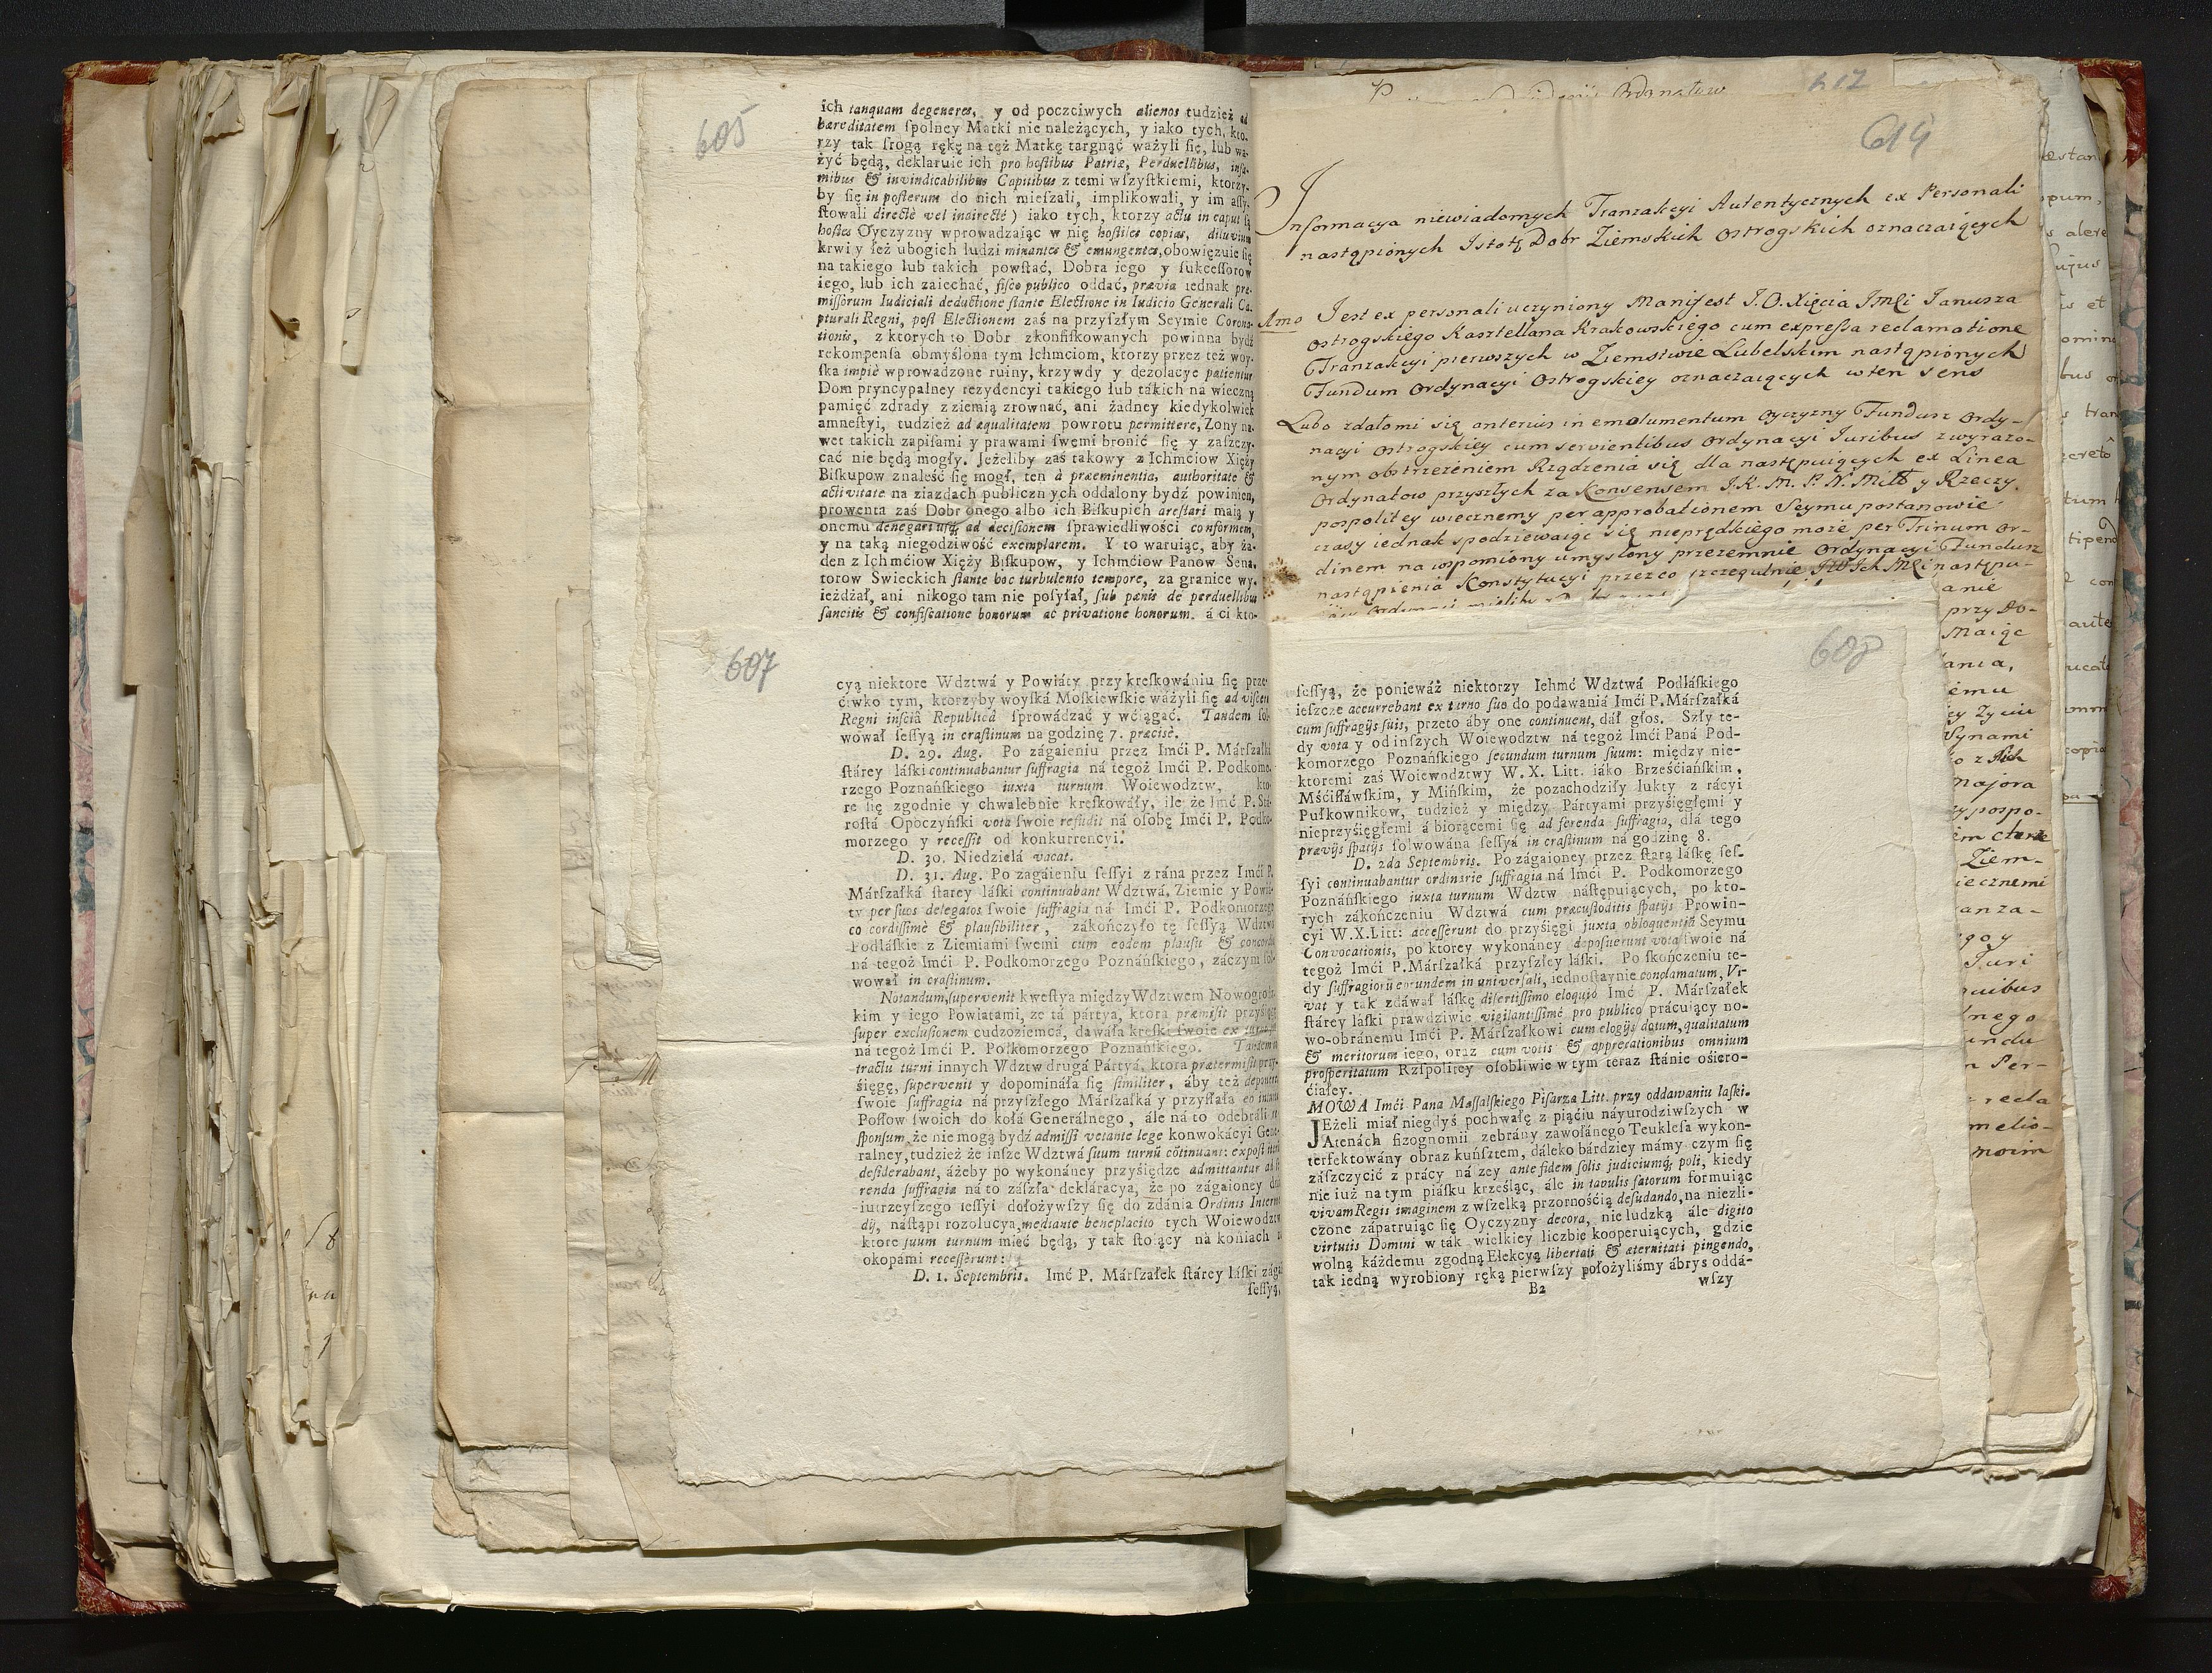 605
ich tanquam degeneres, y od poczciwych alienos tudzież ad
hæreditatem ſpolney Matki nie należących, y iako tych, kto-
rzy tak ſrogą rękę na tęż Matkę targnąć ważyli ſię, lub wa-
żyć będą, deklaruie ich pro hoſtibus Patriæ, Perduellibus, infa-
mibus & invindicabilibus Capitibus z temi wſzyſtkiemi, ktorzy-
by ſię in poſterum do nich mieſzali, implikowali, y im aſſy-
ſtowali directè vel indirectè) iako tych, ktorzy actu in caput ſą
hoſtes Oyczyzny wprowadzaiąc w nię hoſtiles copias, diluvium
krwi y łez ubogich ludzi minantes & emungentes, obowięzuie ſię
na takiego lub takich powſtać, Dobra iego y ſukceſſorow
iego, lub ich zaiechać, fiſco publico oddać, prævia iednak præ-
miſſorum Iudiciali deductione ſtante Electione in Iudicio Generali Ca-
pturali Regni, poſt Electionem zaś na przyſzłym Seymie Corona-
tionis, z ktorych to Dobr zkonfiſkowanych powinna bydź
rekompenſa obmyślona tym Ichmciom, ktorzy przez też woy-
ſka impiè wprowadzone ruiny, krzywdy y dezolacye patientur
Dom pryncypalney rezydencyi takiego lub takich na wieczną
pamięć zdrady z ziemią zrownać, ani żadney kiedykolwiek
amneſtyi, tudzież ad æqualitatem powrotu permittere, Zony na-
wet takich zapiſami y prawami ſwemi bronić ſię y zaſzczy-
cać nie będą mogły. Jeżeliby zaś takowy z Ichmćiow Xięży
Biſkupow znaleść ſię mogł, ten à præeminentia, authoritate &
activitate na ziazdach publicznych oddalony bydź powinien,
prowenta zaś Dobr onego albo ich Biſkupich areſtari maią y
onemu denegari uſq; ad deciſionem ſprawiedliwości conformem,
y na taką niegodziwość exemplarem. Y to waruiąc, aby ża-
den z Ichmćiow Xięży Biſkupow, y Ichmćiow Panow Sena-
torow Swieckich ſtante hoc turbulento tempore, za granice wy-
ieżdżał, ani nikogo tam nie poſyłał, ſub pœnis de perduellibus
ſancitis & confiſcatione bonorum ac privatione honorum. á ci kto-
607
cyą niektore Wdztwá y Powiáty przy kreſkowániu ſię prze-
ćiwko tym, ktorzyby woyſká Moſkiewſkie ważyli ſię ad viſcera
Regni inſciâ Republicâ ſprowádzać y wćiągać. Tandem ſol-
wował ſeſſyą in craſtinum na godzinę 7. præcisè.
D. 29. Aug. Po zágaieniu przez Imći P. Márſzałká
ſtárey láſki continuabantur ſuffragia ná tegoż Imći P. Podkomo-
rzego Poznáńſkiego iuxta turnum Woiewodztw, kto-
re ſię zgodnie y chwalebnie kreſkowáły, ile że Imć P. Stá-
roſtá Opoczyńſki vota ſwoie refudit ná oſobę Imći P. Podko-
morzego y receſſit od konkurrencyi.
D. 30. Niedzielá vacat.
D. 31. Aug. Po zagáieniu ſeſſyi z rána przez Imći P.
Márſzałká ſtarey láſki continuabant Wdztwá, Ziemie y Powia-
ty per ſuos delegatos ſwoie ſuffragia ná Imći P. Podkomorzego
co cordiſſimè & plauſibiliter, zákończyło tę ſeſſyą Wdztwo
Podláſkie z Ziemiami ſwemi cum eodem plauſu & concordia
ná tegoż Imći P. Podkomorzego Poznáńſkiego, záczym ſol-
wował in craſtinum.
Notandum, ſupervenit kweſtya między Wdztwem Nowogrodz-
kim y iego Powiatami, że tá pártya, ktora præmiſit przyſięgę
ſuper excluſionem cudzoziemcá, dawáła kreſki ſwoie ex turno
ná tegoż Imći P. Podkomorzego Poznáńſkiego. Tandem in
tractu turni innych Wdztw drugá Pártyá, ktora prætermiſit przy-
ſięgę, ſupervenit y dopomináła ſię ſimiliter, áby też deponere
ſwoie ſuffragia ná przyſzłego Márſzałká y przyſłáłá eo
Poſłow ſwoich do kołá Generálnego, ále ná to odebráli re-
ſponſum, że nie mogą bydź admiſſi vetante lege konwokácyi Gene-
ralney, tudzież że inſze Wdztwá ſuum turnũ cõtinuant: expoſt
deſiderabant, áżeby po wykonáney przyſiędze admittantur ad fe-
renda ſuffragia ná to záſzła deklárácya, że po zágaioney
iutrzeyſzego ſeſſyi dołożywſzy ſię do zdánia Ordinis Interme-
dij, náſtąpi rozolucya, mediante beneplacito tych Woiewodztw
ktore ſuum turnum mieć będą, y tak ſtoiący ná koniach
okopámi receſſerunt:
D. 1. Septembris. Imć P. Márſzałek ſtárey láſki zágá
ſeſſyą,
Ordynatow
617
614
Informacya niewiadomych Tranzakcyi Autentycznych ex Personali
nastąpionych Istotę Dobr Ziemskich Ostrogskich oznaczaiących
Imo Jest ex personali uczyniony Manifest J. O. Xięcia Jmći Janusza
Ostrogskiego Kasztellana Krakowskiego cum expressa reclamatione
Tranzakcyi pierwszych w Ziemstwie Lubelskim nastąpionych
Fundum Ordynacyi Ostrogskiey oznaczaiących w ten sens
Lubo zdałomi się anterius in emolumentum Oyczyzny Fundusz Ordy-
nacyi Ostrogskiey cum servientibus Ordynacyi Juribus z wyrażo-
nym obstrzeżeniem Rządzenia się dla następuiących ex Linea
Ordynatow przyszłych za Konsensem J. K. M. P. N. Miłł y Rzeczy-
pospolitey wiecznemy per approbationem Seymu postanowie
czasy iednak spodziewaiąc się nieprędkiego może per Trinum Or-
dinem na wspomiony umyslony przezemnie Ordynacyi Fundusz
nastąpienia Konstytucyi przezco szczegulnie JWJch Mći następu-
anie
przy Do-
Maiąc
ania,
emu
ey Zyciu
Synami
o z Nich
majora
zypospo-
em
Ziem-
iecznemi
anza-
goy
Juri
nego
undu
n Per-
recla
melio-
moim
608
ſeſſyą, że ponieważ niektorzy Iehmć Wdztwá Podláſkiego
ieſzcze accurrebant ex turno ſuo do podawania Imći P. Márſzałká
cum ſuffragijs ſuis, przeto áby one continuent, dáł głos. Szły te-
dy vota y od inſzych Woiewodztw ná tegoż Imći Paná Pod-
komorzego Poznáńſkiego ſecundum turnum ſuum: między nie-
ktoremi zaś Woiewodztwy W. X. Litt. iáko Brześćiańſkim,
Mśćiſłáwſkim, y Mińſkim, że pozachodziły łukty z rácyi
Pułkownikow, tudzież y między Pártyami przyśięgłęmi y
nieprzyśięgłemi á biorącemi ſię ad ferenda ſuffragia, dlá tego
prævijs ſpatijs ſolwowána ſeſſya in craſtinum na godzinę 8.
D. 2da Septembris. Po zágaioney przez ſtarą láſkę ſeſ-
ſyi continuabantur ordinarie ſuffragia ná Imći P. Podkomorzego
Poznáńſkiego iuxta turnum Wdztw náſtępuiących, po kto-
rych zákończeniu Wdztwá cum præcuſtoditis ſpatijs Prowin-
cyi W.X.Litt: acceſſerunt do przyśięgi juxta obloquentiā Seymu
Convocationis, po ktorey wykonáney depoſuerunt vota ſwoie ná
tegoż Imći P. Márſzałká przyſzłey láſki. Po ſkończeniu te-
dy ſuffragiorũ eorundem in univerſali, iednoſtaynie conclamatum, Vi-
vat y tak zdáwał láſkę diſertiſſimo eloquiô Imć P. Márſzałek
ſtárey láſki prawdziwie vigilantiſſimè pro publico prácuiący no-
wo-obránemu Imći P. Márſzałkowi cum elogijs dotum, qualitatum
& meritorum iego, oraz cum votis & apprecationibus omnium
proſperitatum Rzſpolitey oſobliwie w tym teraz ſtánie ośiero-
ćiałey.
MOWA Imći Pana Maſſalſkiego Piſarza Litt. przy oddawaniu laſki.
JEżeli miał niegdyś pochwałę z piąćiu náyurodziwſzych w
Atenách fizognomii zebrány zawołánego Teukleſa wykon-
terfektowány obraz kuńſztem, dáleko bárdziey mámy czym ſię
záſzczycić z prácy ná zey ante fidem ſolis judiciumq; poli, kiedy
nie iuż na tym piáſku krześląc, ále in tabulis fatorum formuiąc
vivam Regis imaginem z wſzelką przornośćią deſudando, na niezli-
czone zápatruiąc ſię Oyczyzny decora, nie ludzką ále digito
virtutis Domini w ták wielkiey liczbie kooperuiących, gdzie
wolną káżdemu zgodną Elekcyą libertati & æternitati pingendo,
tak iedną wyrobiony ręką pierwſzy położyliśmy ábrys oddá-
wſzy
B2